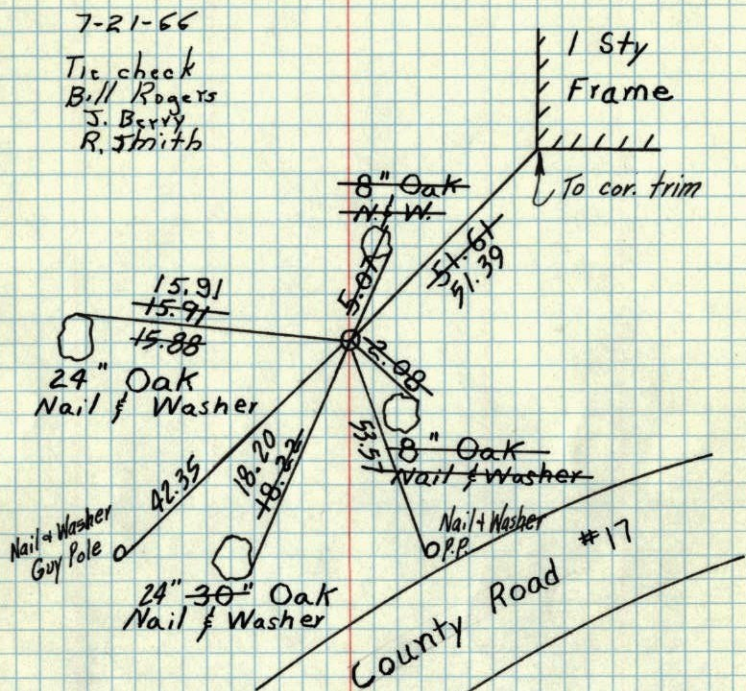 7-21-66
Tie check
Bill Rogers
J. Berry
R. Smith
1 Sty
Frame
To cor. trim
8" Oak
N. & W.
5.07
51.61
51.39
15.91
15.91
15.88
24" Oak
Nail & Washer
2.08
8" Oak
Nail & Washer
42.35
18.20
18.22
53.57
Nail & Washer
Guy Pole
Nail & Washer
P.P.
24" 30" Oak
Nail & Washer
County Road #17